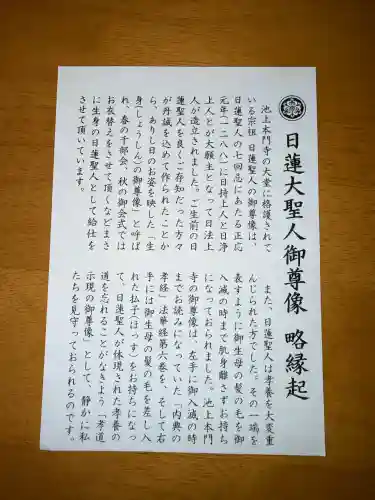 日蓮大聖人御尊像 略縁起
池上本門寺の大堂に格護されて
いる宗祖日蓮聖人の御尊像は、
日蓮聖人の七回忌にあたる正応
元年(一二八八)に日持上人と日浄
上人とが大願主となって日法上
人が造立されました。ご生前の日
蓮聖人を良くご存知だった方々
が丹誠を込めて作られたことか
ら、ありし日のお姿を映した「生
身(しょうしん)の御尊像」と呼ば
れ、春の千部会、秋の御会式では
お衣替えをさせて頂くなどまさ
に生身の日蓮聖人として給仕を
させて頂いています。
また、日蓮聖人は孝養を大変重
んじられた方でした。その一端を
表すように御生母の髪の毛を御
入滅の時まで肌身離さずお持ち
になっておられました。池上本門
寺の御尊像は、左手に御入滅の時
までお読みになっていた「内典の
孝経」法華経第六巻を、そして右
手には御生母の髪の毛を差し入
れた払子(ほっす)をお持ちになっ
て、日蓮聖人が体現された孝養の
道を忘れることがなきよう「孝道
示現の御尊像」として、静かに私
たちを見守っておられるのです。